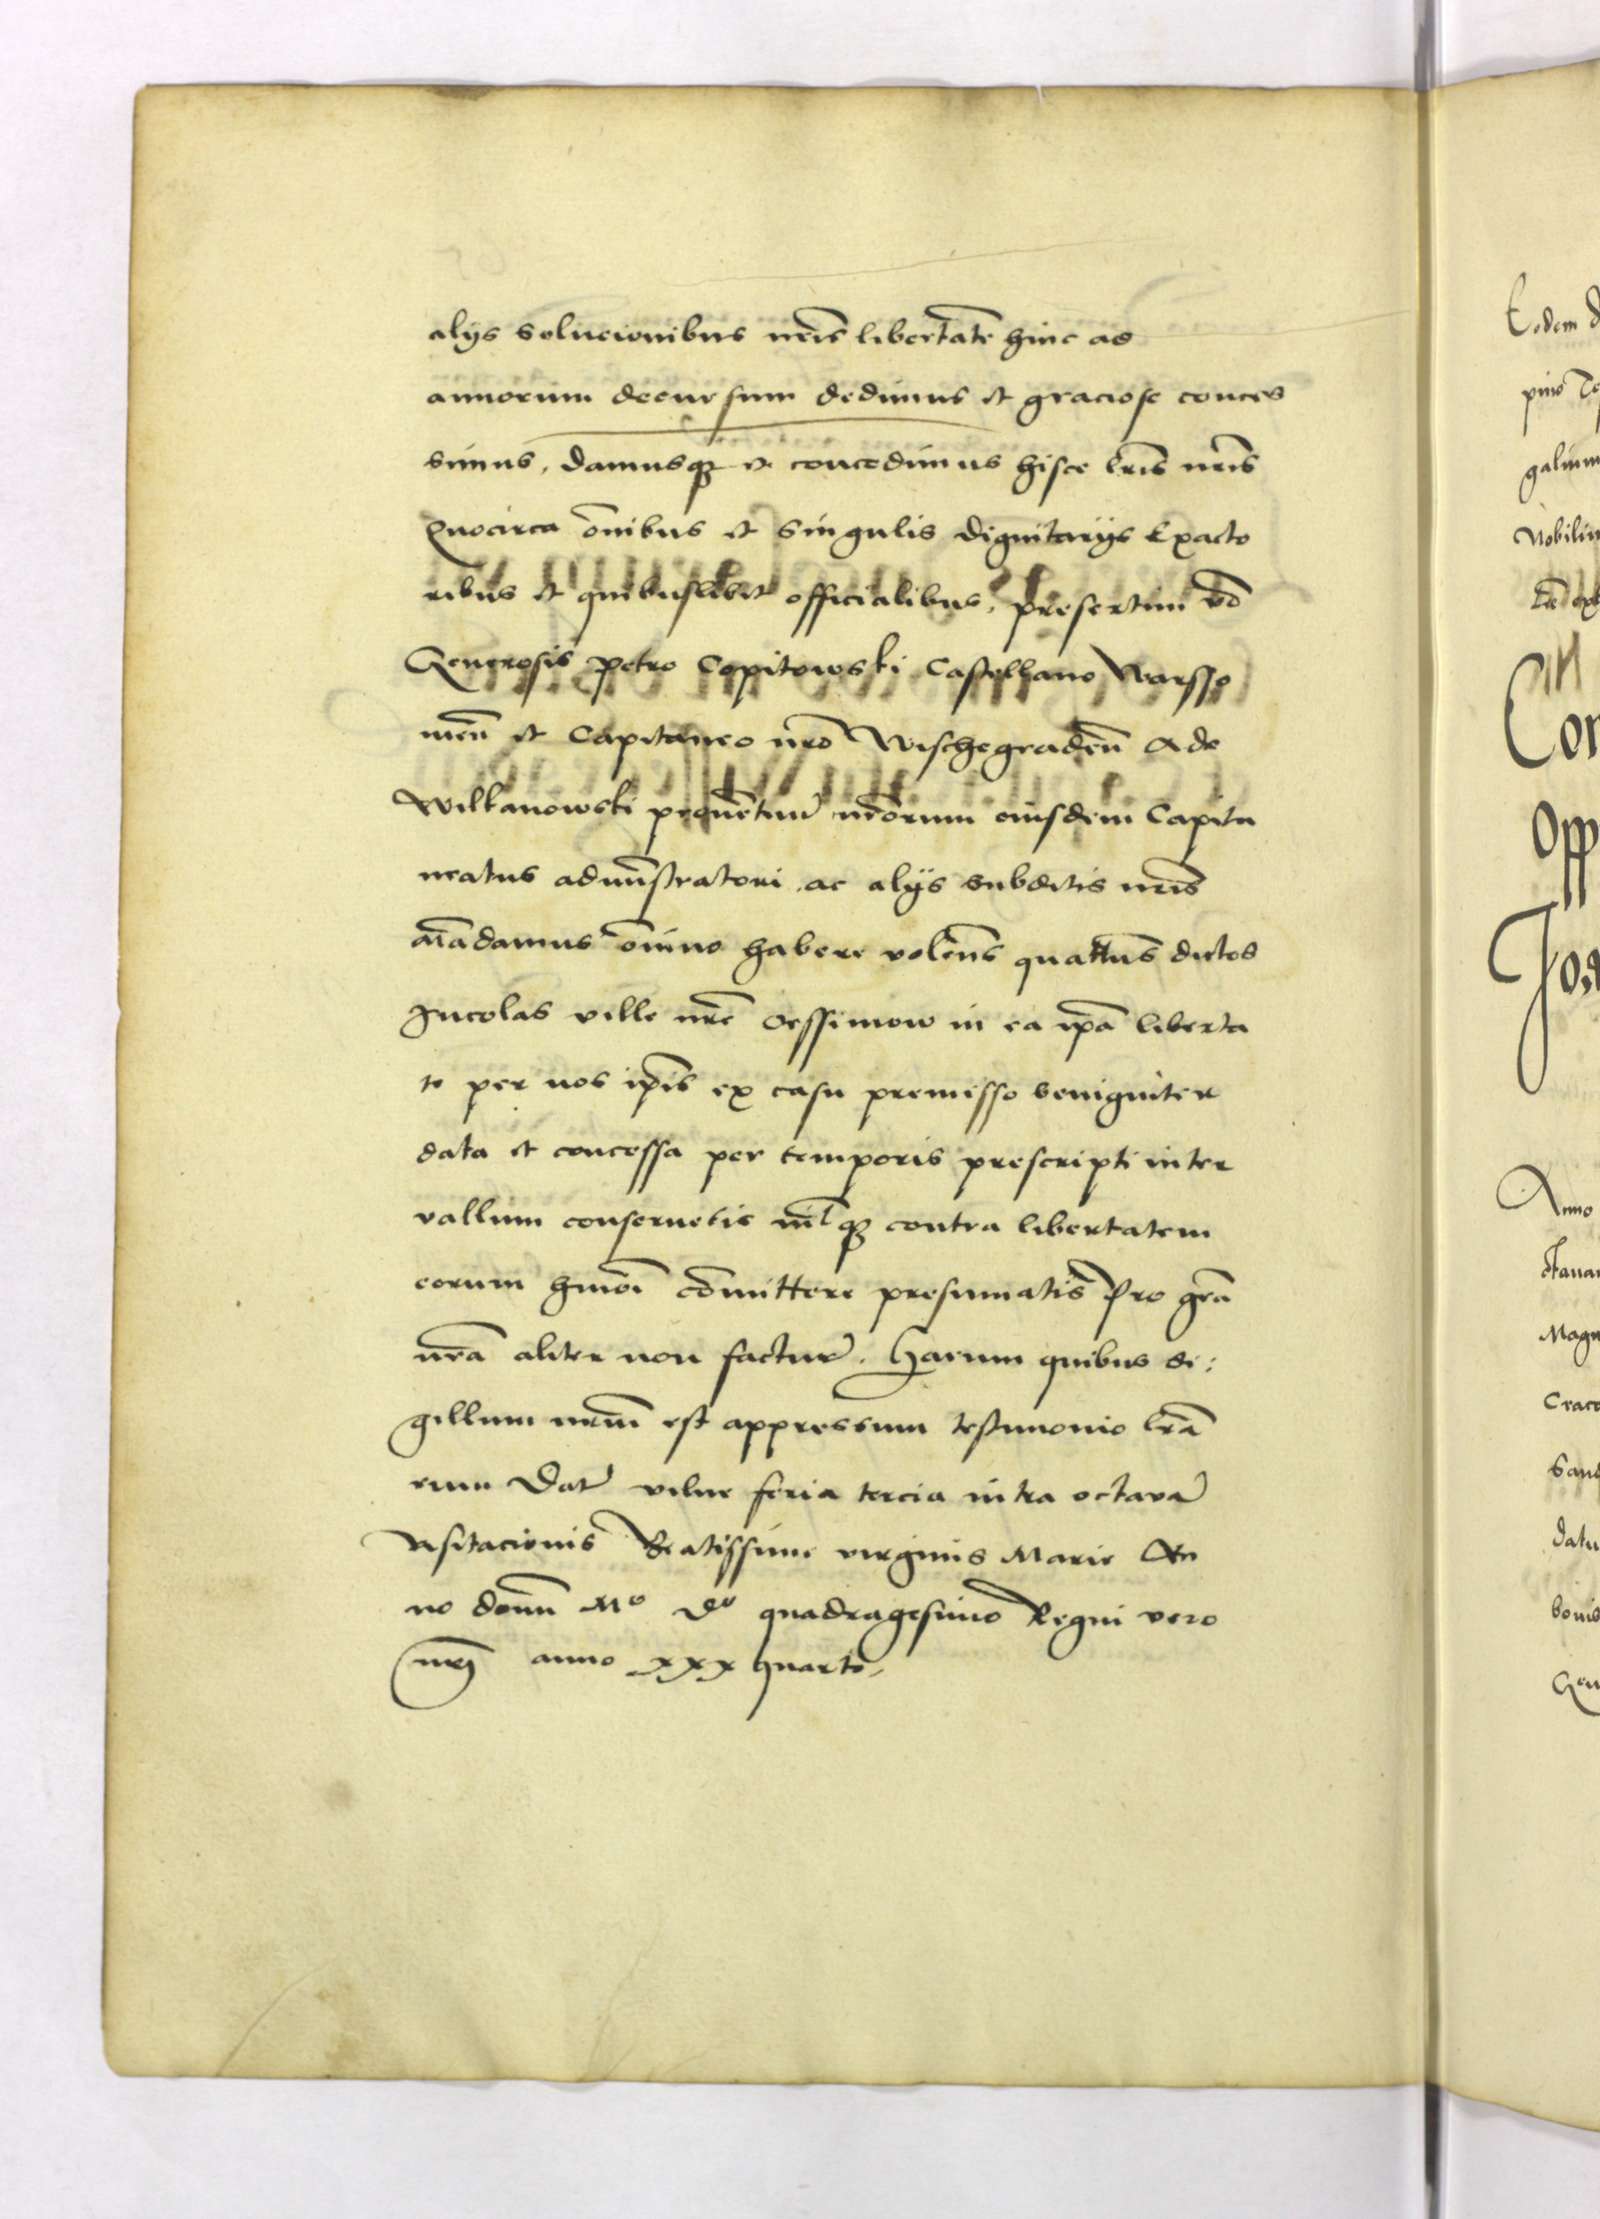 alijs solucionibus nr̃is libertatẽ hinc ad
annorum decursum dedimus et graciose conces
simus, damusqꝫ et concedimus hisce lr̃is nr̃is
Quocirca õnibus et singulis dignitarijs Exacto
ribus et quibuslibet officialibus, presertim vo
Generosis petro Copitowski Castellano Warsso
nien̄ et Capitaneo nr̃o Wischegraden̄ Ade
Wilkanowski prouẽtuũ nr̃orum eiusdem Capita
neatus admĩstratori ac alijs subditis nr̃is
mãdamus õnino habere volen̄s quatt̃us dictos
Incolas ville nr̃e Ossimow in ea ip̃a liberta
te per nos ip̃is ex casu premisso benigniter
data et concessa per temporis prescripti inter
vallum conseruetis nĩlqꝫ contra libertatem
eorum hmõi cõmittere presumatis Pro gr̃a
nr̃a aliter non factur̃. Harum quibus si:
gillum nr̃um est appressum testimonio lr̃a
rum Dat̃ vilne feria tercia intra octauã
visitacionis Beatissime virginis Marie An
no domĩ Mᵒ Dᵒ quadragesimo Regni vero
nr̃j anno xxx quarto.
Eodem
galium
Nobiliu
Con
Opp
Anno
Magn
Crac
Sand
datu
bonis
Gen